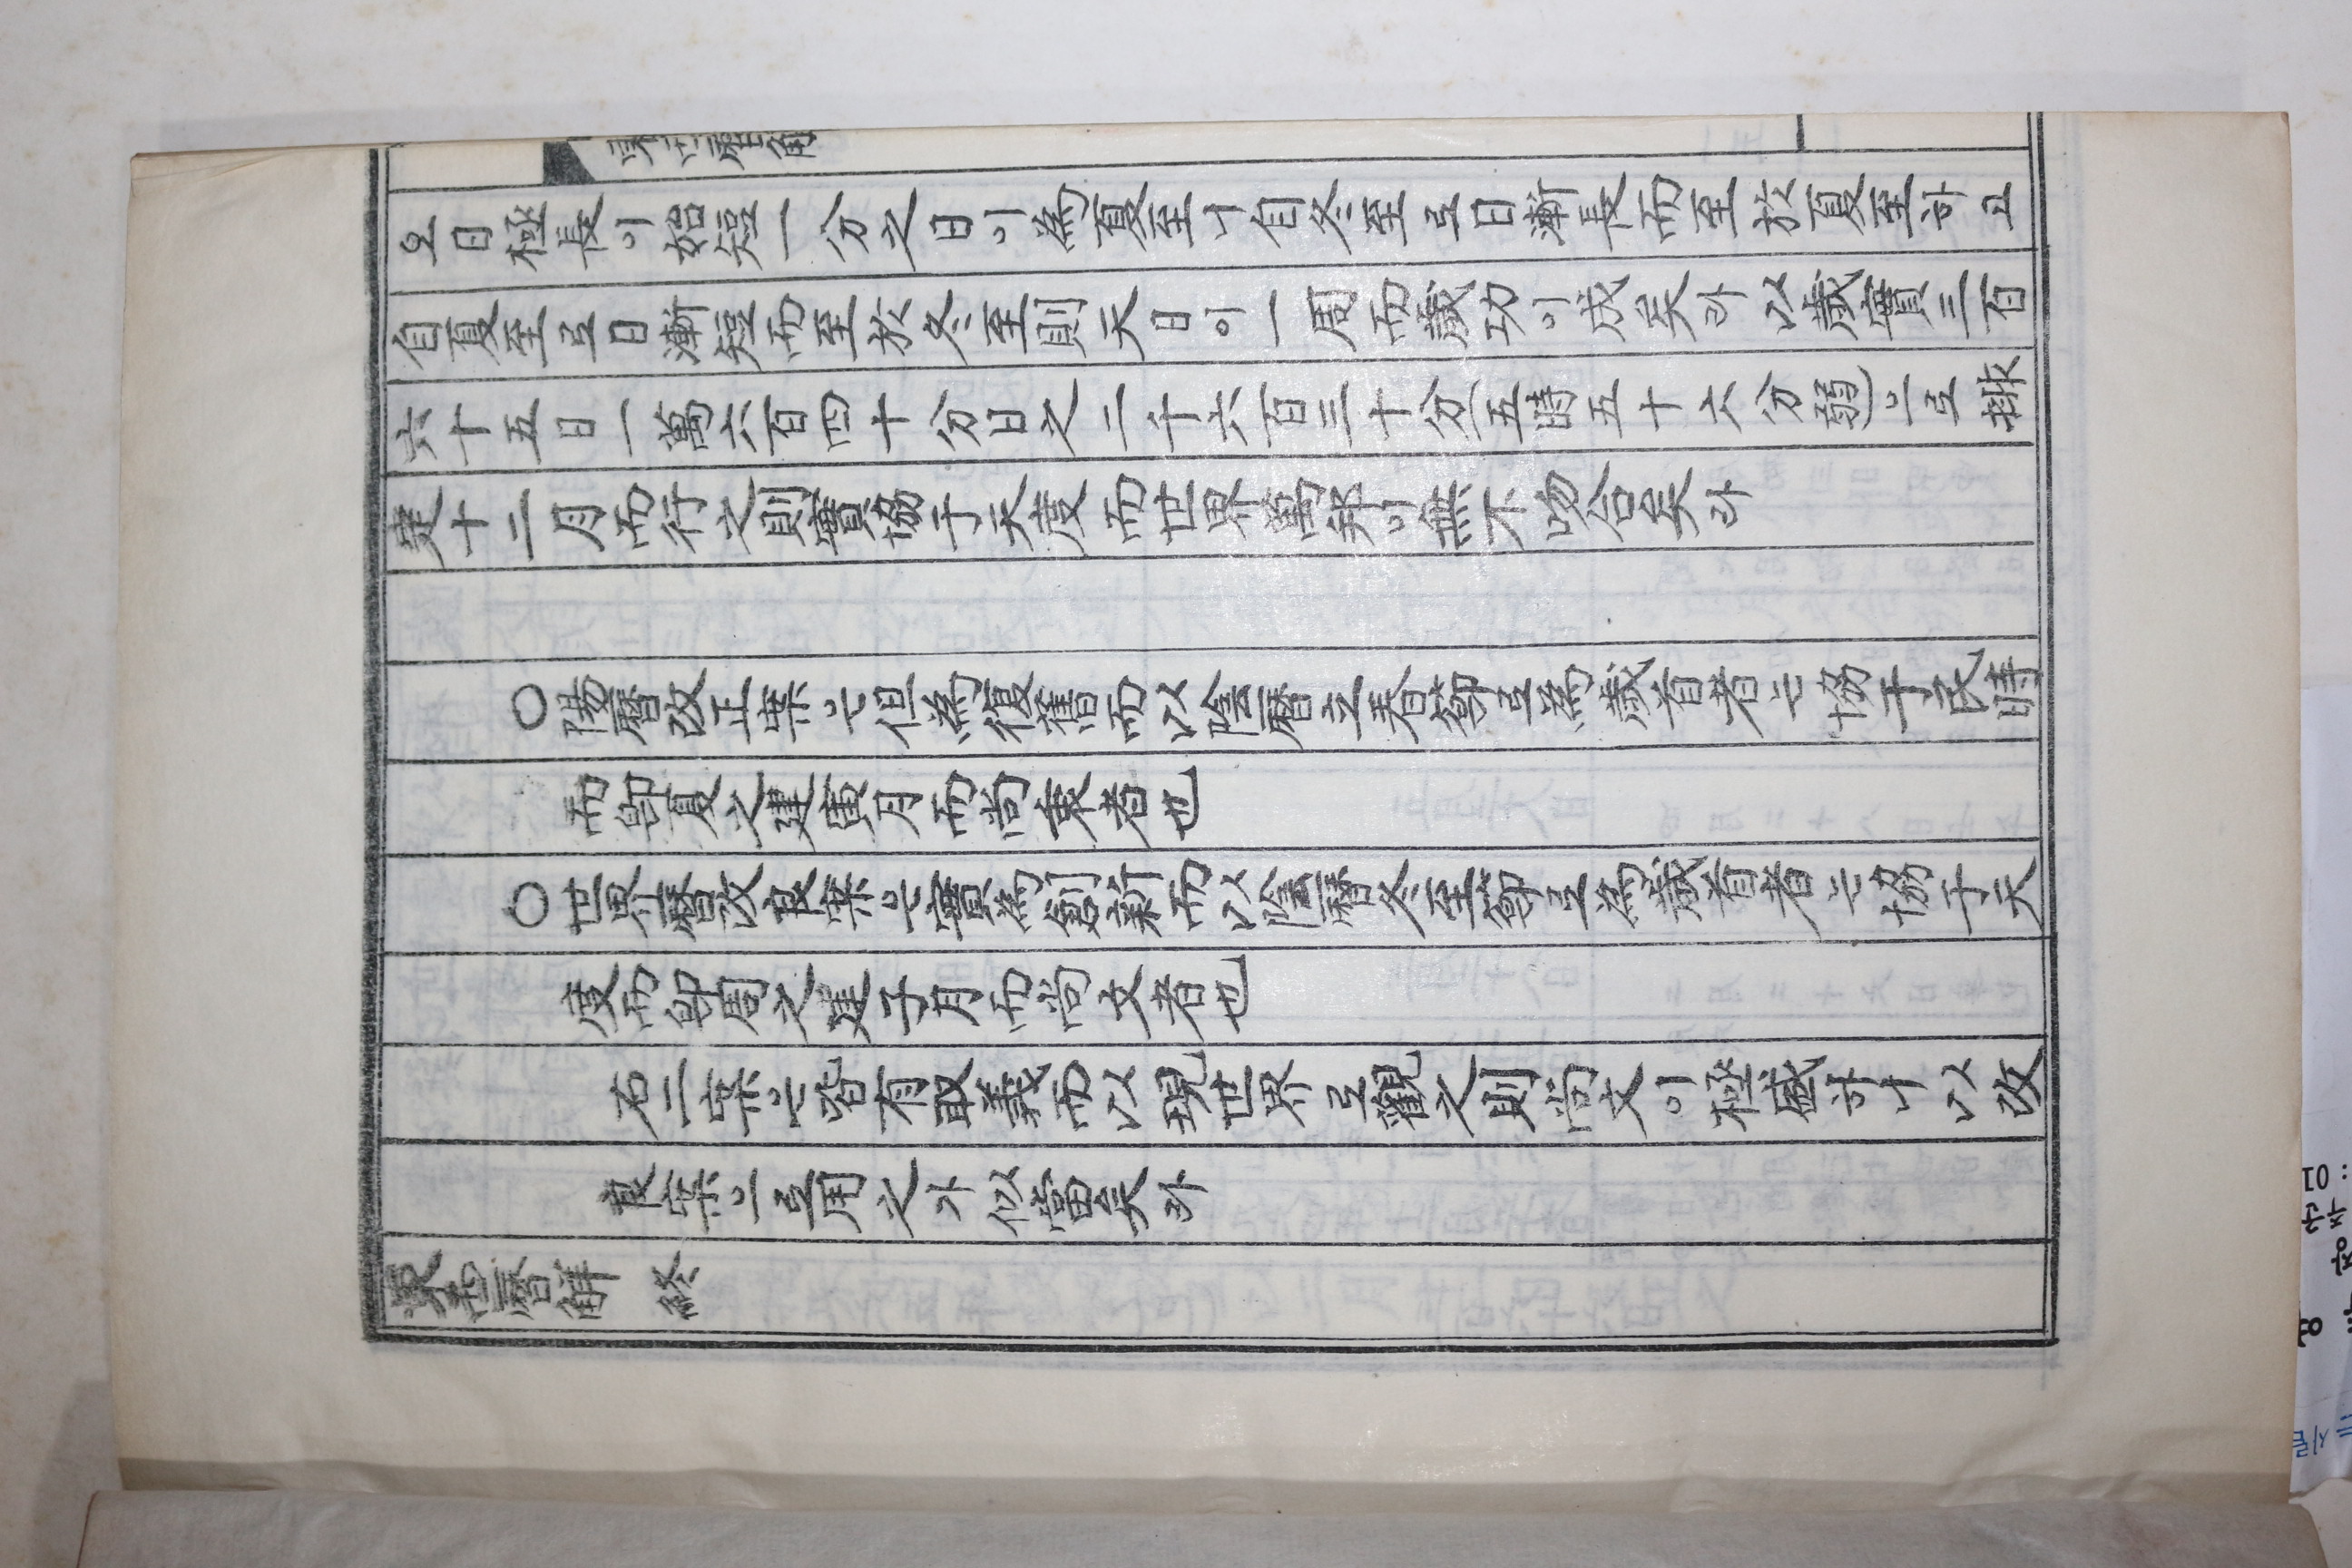 오日極長이始短一分之日이爲夏至니自冬至로日漸長而至於夏至하고
自夏至로日漸短而至於冬至則天日이一周而歲功이成矣라以歲實三百
六十五日一萬六百四十分日之二千六百三十分(五時五十六分弱)으로排
定十二月而行之則實協于天度而世界萬邦이無不吻合矣라
○陽曆改正案은但爲復舊而以陰曆立春節로爲歲首者는協于民時
而卽夏之建寅月而尙衷者也
○世界曆改良案은實爲創新而以陰曆冬至節로爲歲首者는協于天
度而卽周之建子月而尙文者也
右二案은皆有取義而以現世界로觀之則尙文이極盛하니以改
良案으로用之가似當矣라
曆解 終